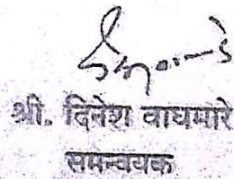 श्री. दिनेश वाघमारे
समन्वयक